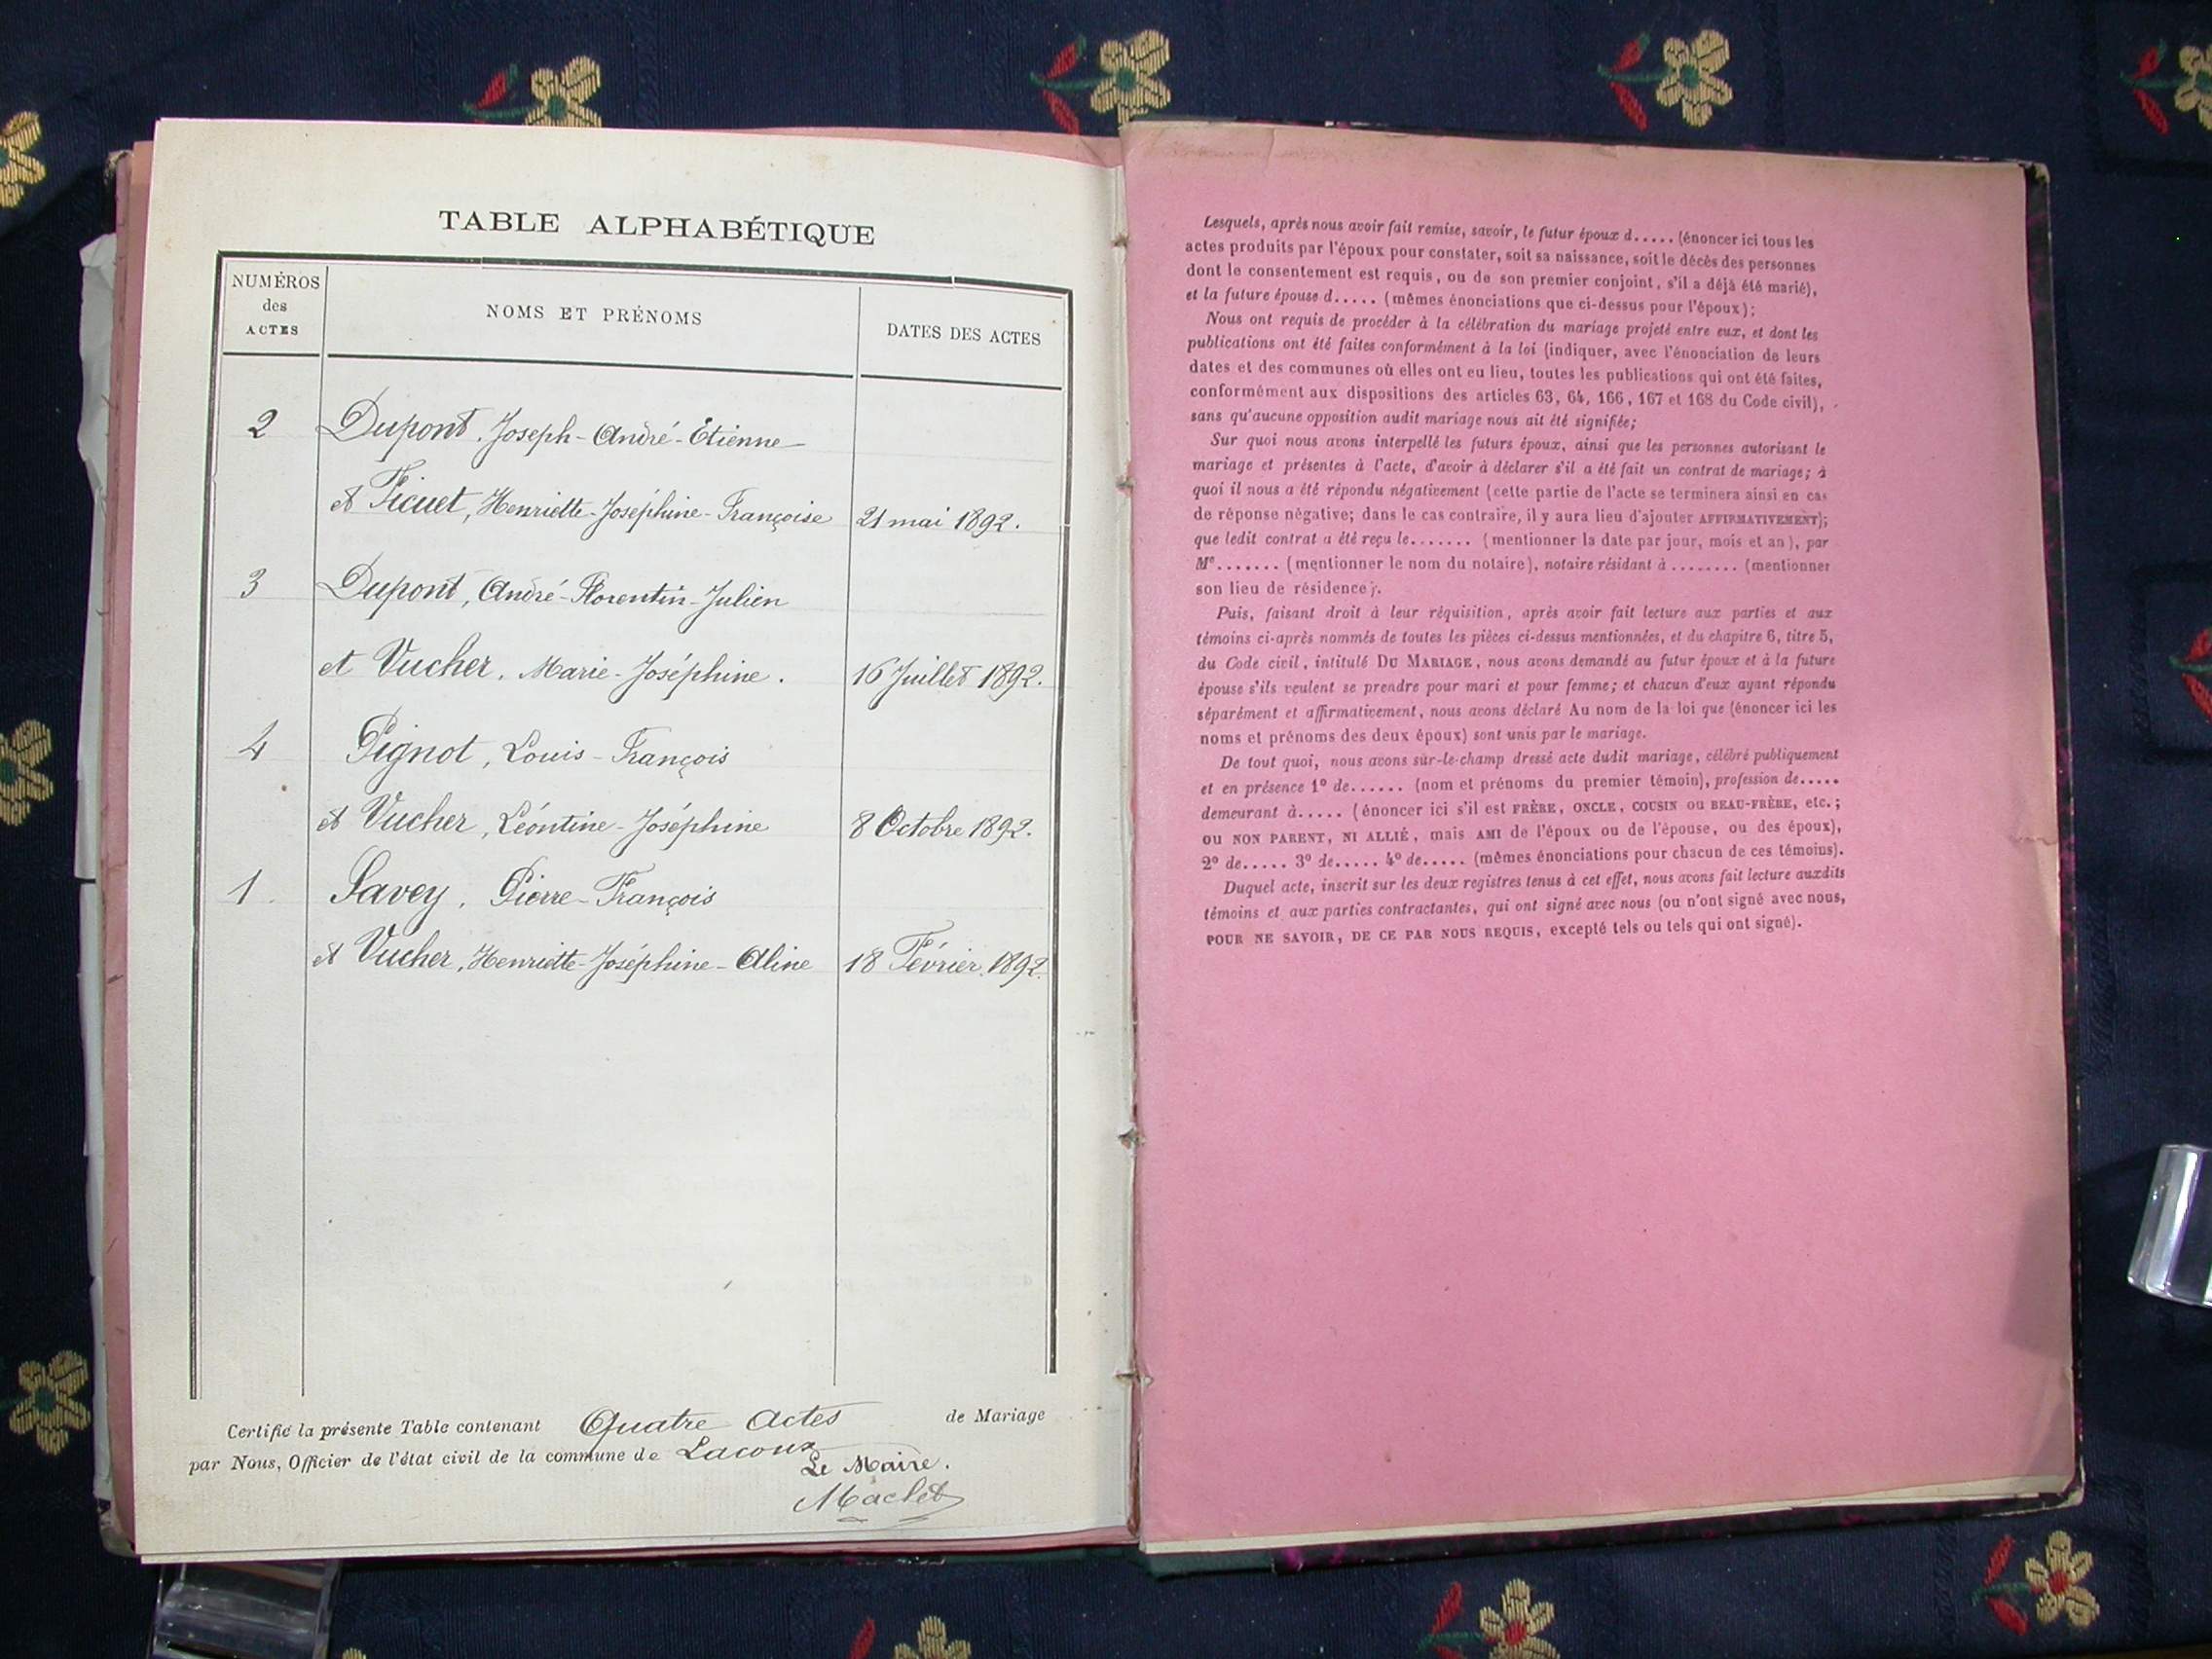 TABLE ALPHABÉTIQUE
NUMÉROS
des
ACTES
NOMS ET PRÉNOMS
DATES DES ACTES
2 Dupont, Joseph-André-Étienne
et Ficuet, Henriette-Joséphine-Françoise 21 mai 1892.
3 Dupont, André-Florentin-Julien
et Vucher, Marie-Joséphine. 16 Juillet 1892.
4 Pignot, Louis-François
et Vucher, Léontine-Joséphine 8 Octobre 1892.
1. Savey, Pierre-François
et Vucher, Henriette-Joséphine-Aline 18 Février 1892.
Certifié la présente Table contenant Quatre Actes de Mariage
par Nous, Officier de l'état civil de la commune de Lacoux
Le Maire.
Maclet
Lesquels, après nous avoir fait remise, savoir, le futur époux d..... (énoncer ici tous les
actes produits par l'époux pour constater, soit sa naissance, soit le décès des personnes
dont le consentement est requis, ou de son premier conjoint, s'il a déjà été marié),
et la future épouse d..... (mêmes énonciations que ci-dessus pour l'époux);
Nous ont requis de procéder à la célébration du mariage projeté entre eux, et dont les
publications ont été faites conformément à la loi (indiquer, avec l'énonciation de leurs
dates et des communes où elles ont eu lieu, toutes les publications qui ont été faites,
conformément aux dispositions des articles 63, 64, 166, 167 et 168 du Code civil),
sans qu'aucune opposition audit mariage nous ait été signifiée;
Sur quoi nous avons interpellé les futurs époux, ainsi que les personnes autorisant le
mariage et présentes à l'acte, d'avoir à déclarer s'il a été fait un contrat de mariage; à
quoi il nous a été répondu négativement (cette partie de l'acte se terminera ainsi en cas
de réponse négative; dans le cas contraire, il y aura lieu d'ajouter AFFIRMATIVEMENT);
que ledit contrat a été reçu le....... (mentionner la date par jour, mois et an), par
Me....... (mentionner le nom du notaire), notaire résidant à ........ (mentionner
son lieu de résidence).
Puis, faisant droit à leur réquisition, après avoir fait lecture aux parties et aux
témoins ci-après nommés de toutes les pièces ci-dessus mentionnées, et du chapitre 6, titre 5,
du Code civil, intitulé DU MARIAGE, nous avons demandé au futur époux et à la future
épouse s'ils veulent se prendre pour mari et pour femme; et chacun d'eux ayant répondu
séparément et affirmativement, nous avons déclaré Au nom de la loi que (énoncer ici les
noms et prénoms des deux époux) sont unis par le mariage.
De tout quoi, nous avons sûr-le-champ dressé acte dudit mariage, célébré publiquement
et en présence 1º de...... (nom et prénoms du premier témoin), profession de.....
demeurant à..... (énoncer ici s'il est FRÈRE, ONCLE, COUSIN OU BEAU-FRÈRE, etc.;
OU NON PARENT, NI ALLIÉ, mais AMI de l'époux ou de l'épouse, ou des époux),
2º de..... 3º de..... 4º de..... (mêmes énonciations pour chacun de ces témoins).
Duquel acte, inscrit sur les deux registres tenus à cet effet, nous avons fait lecture auxdits
témoins et aux parties contractantes, qui ont signé avec nous (ou n'ont signé avec nous,
POUR NE SAVOIR, DE CE PAR NOUS REQUIS, excepté tels ou tels qui ont signé).